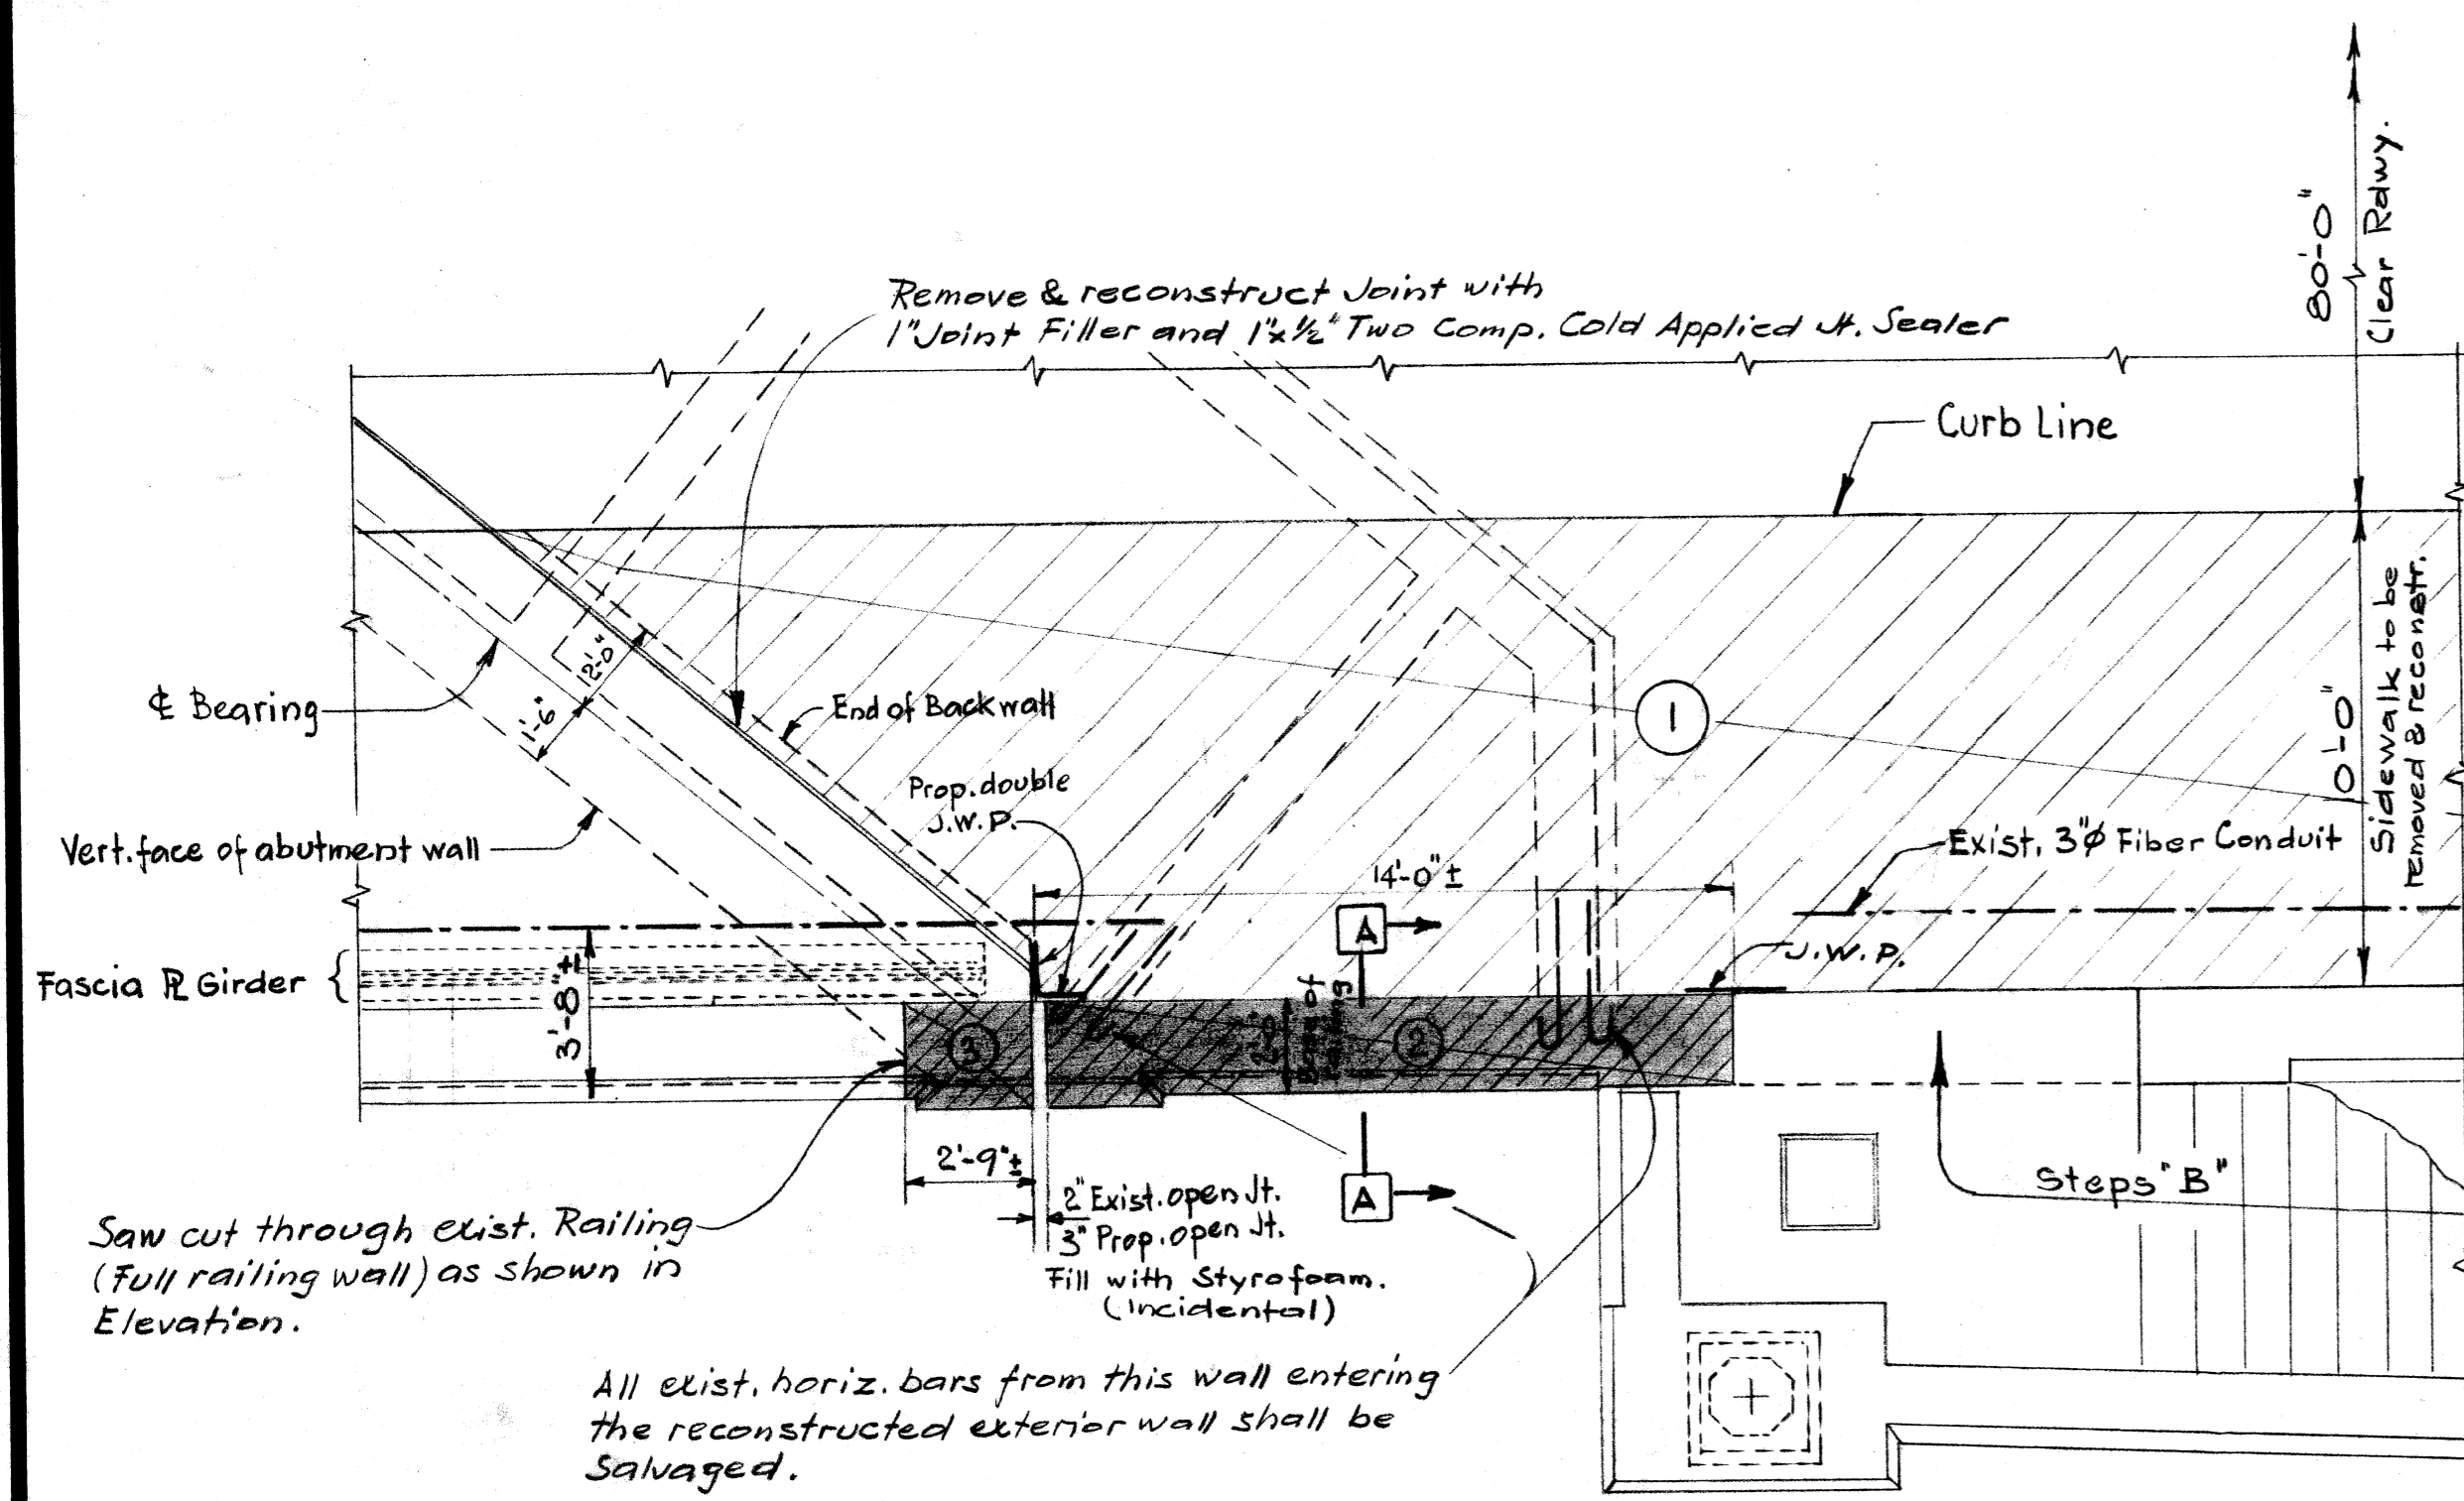 80'-0"
Clear Rdwy.
Remove & reconstruct Joint with
1" Joint Filler and 1"x½" Two Comp. Cold Applied Jt. Sealer
Curb Line
2'-0"
1'-6"
℄ Bearing
End of Backwall
1
10'-0"
Sidewalk to be
removed & reconstr.
Prop. double
J.W.P.
Vert. face of abutment wall
Exist. 3"ø Fiber Conduit
14'-0" ±
A
J.W.P.
Fascia PL Girder
3'-8"±
3
2
2'-9"±
2" Exist. open Jt.
3" Prop. open Jt.
Fill with Styrofoam.
(Incidental)
A
Steps "B"
Saw cut through exist. Railing
(Full railing wall) as shown in
Elevation.
All exist. horiz. bars from this wall entering
the reconstructed exterior wall shall be
Salvaged.